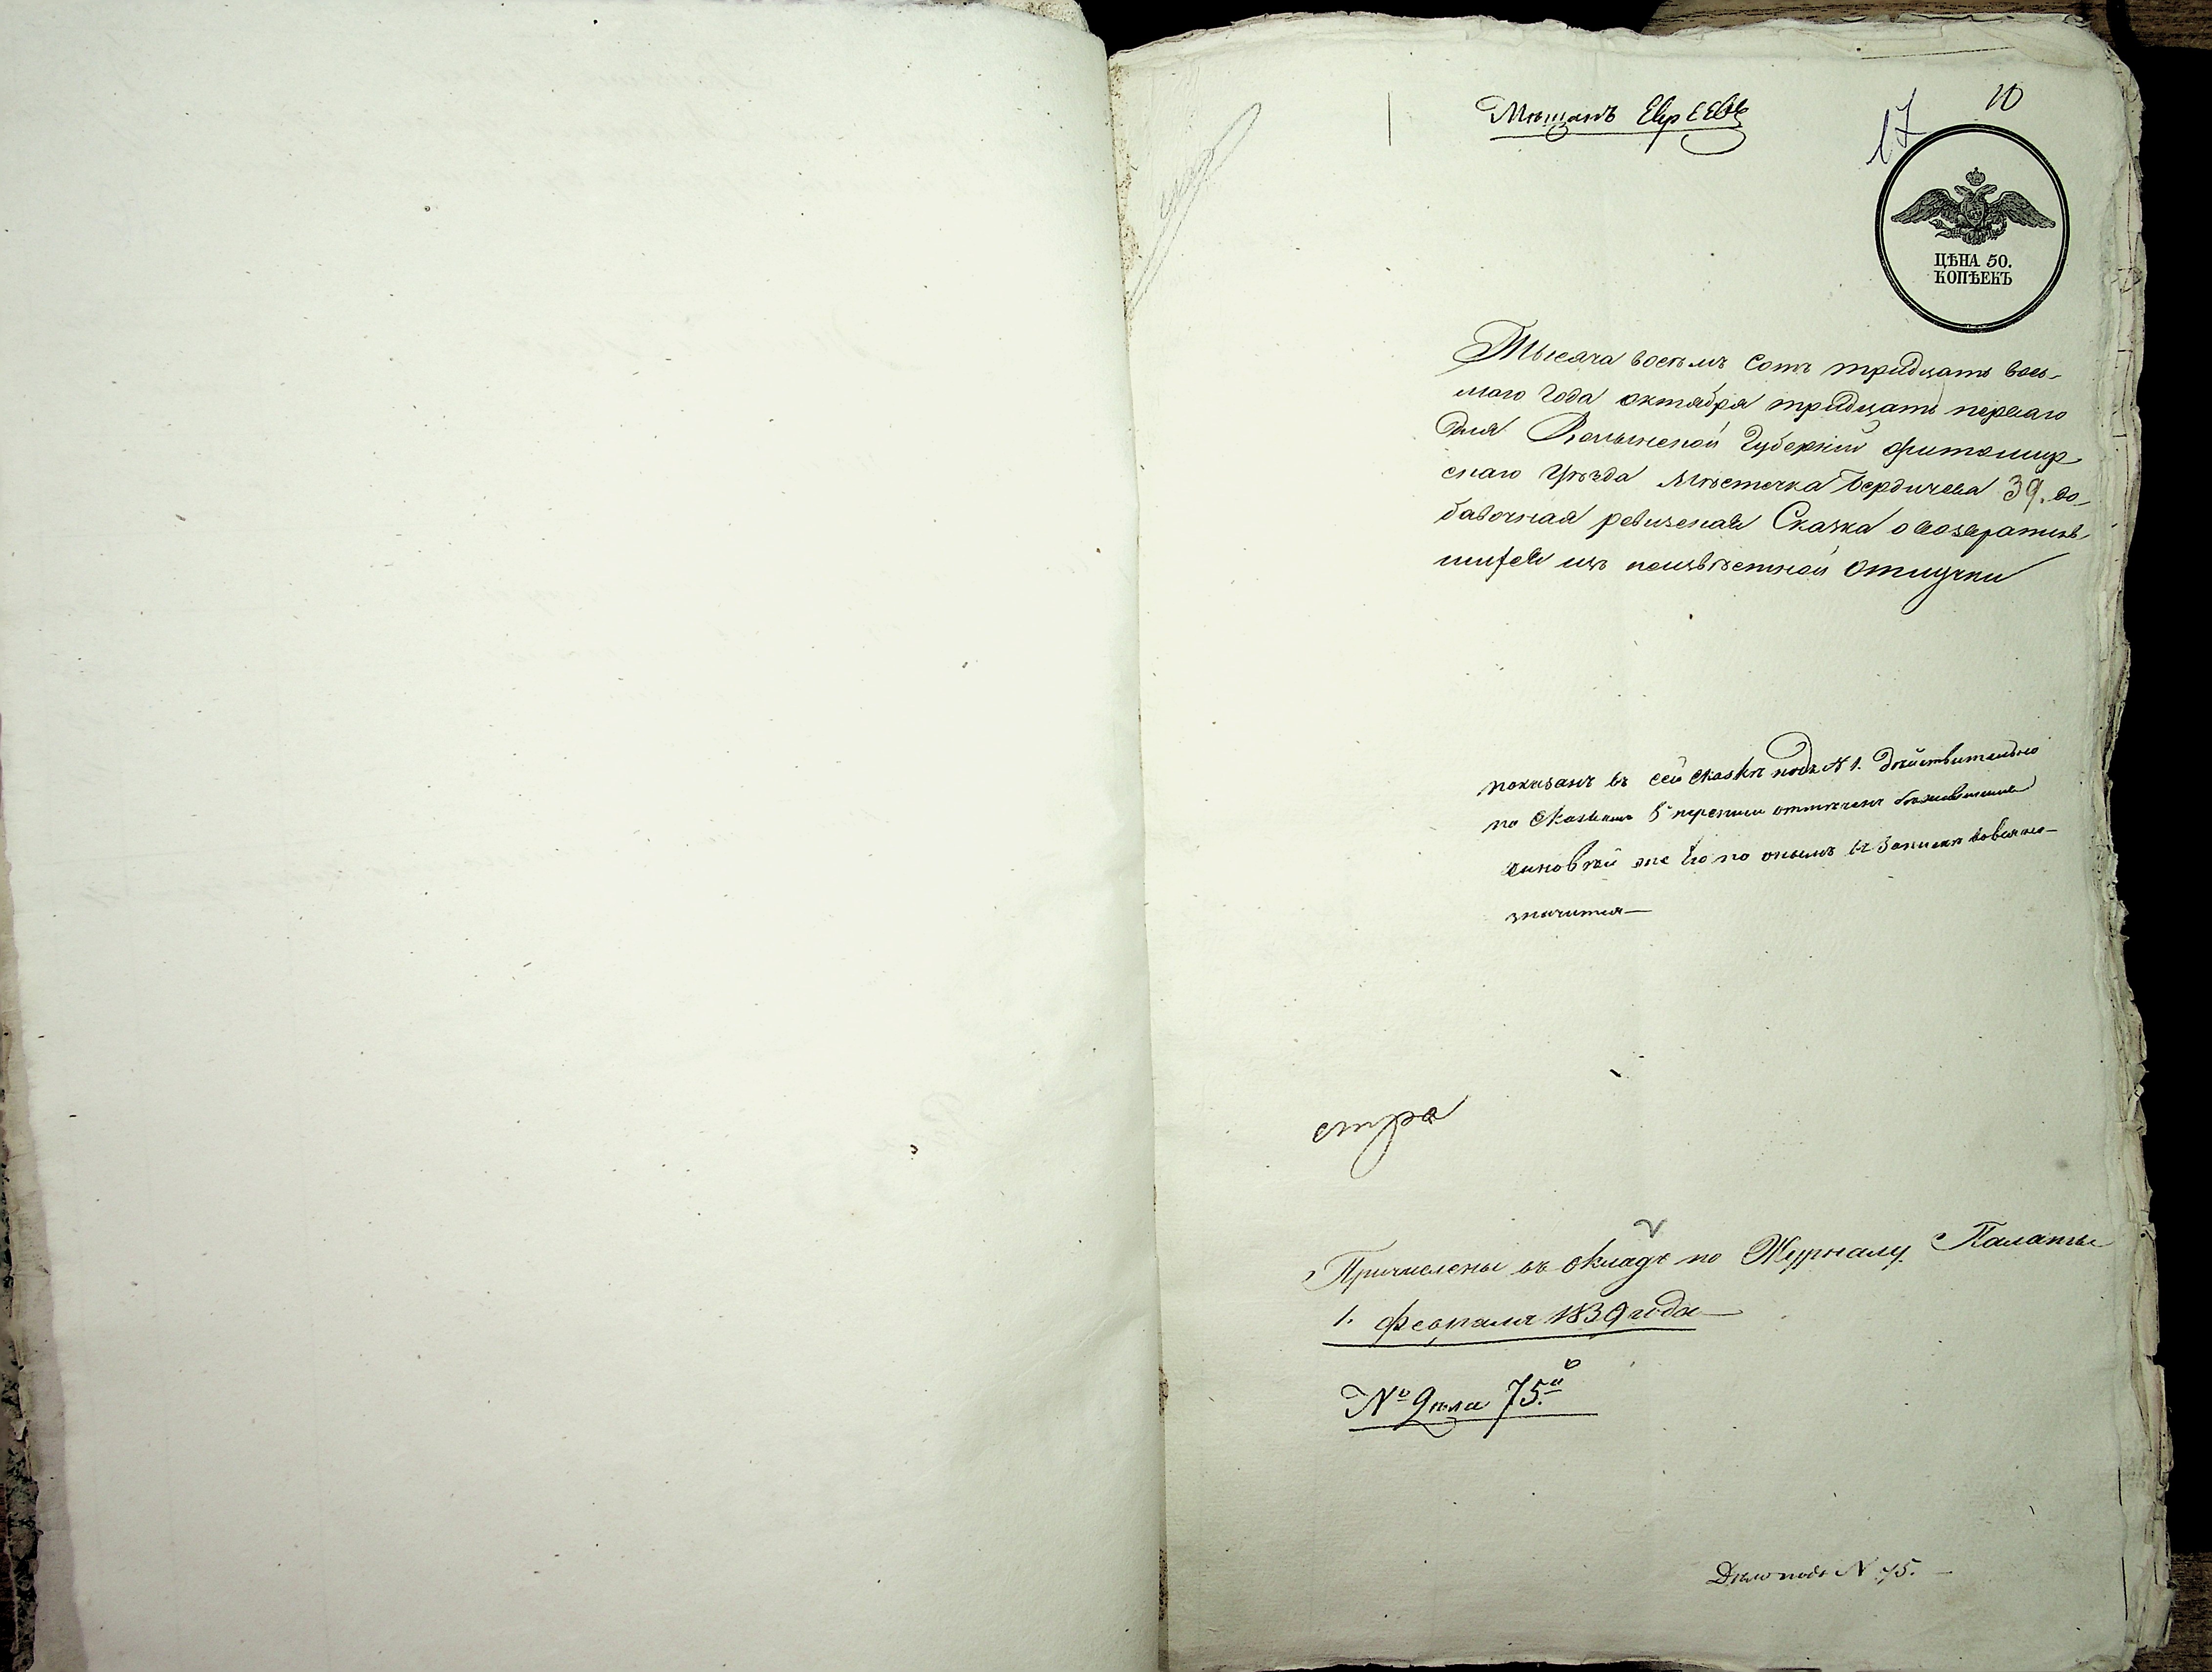 Мѣщанъ Евреевъ
10
17
ЦѢНА 50.
КОПѢЕКЪ
Тысяча восемь сотъ тридцать вось-
маго года октября тридцать перваго
дня Волынской Губерніи Житомир
скаго уѣзда Мѣстечка Бердичева 39. до-
бавочная ревизская Сказка о возвратив-
шихся изъ неизвѣстной отлучки
показанъ въ сей сказкѣ подъ N 1. дѣйствительно
по сказкамъ переписи отмѣченъ
же его по онымъ въ
значится—
стра
Причислены въ окладъ по Журналу Палаты
1. февраля 1839 года—
№ дѣла 75.й
Дѣло подъ N 75. —